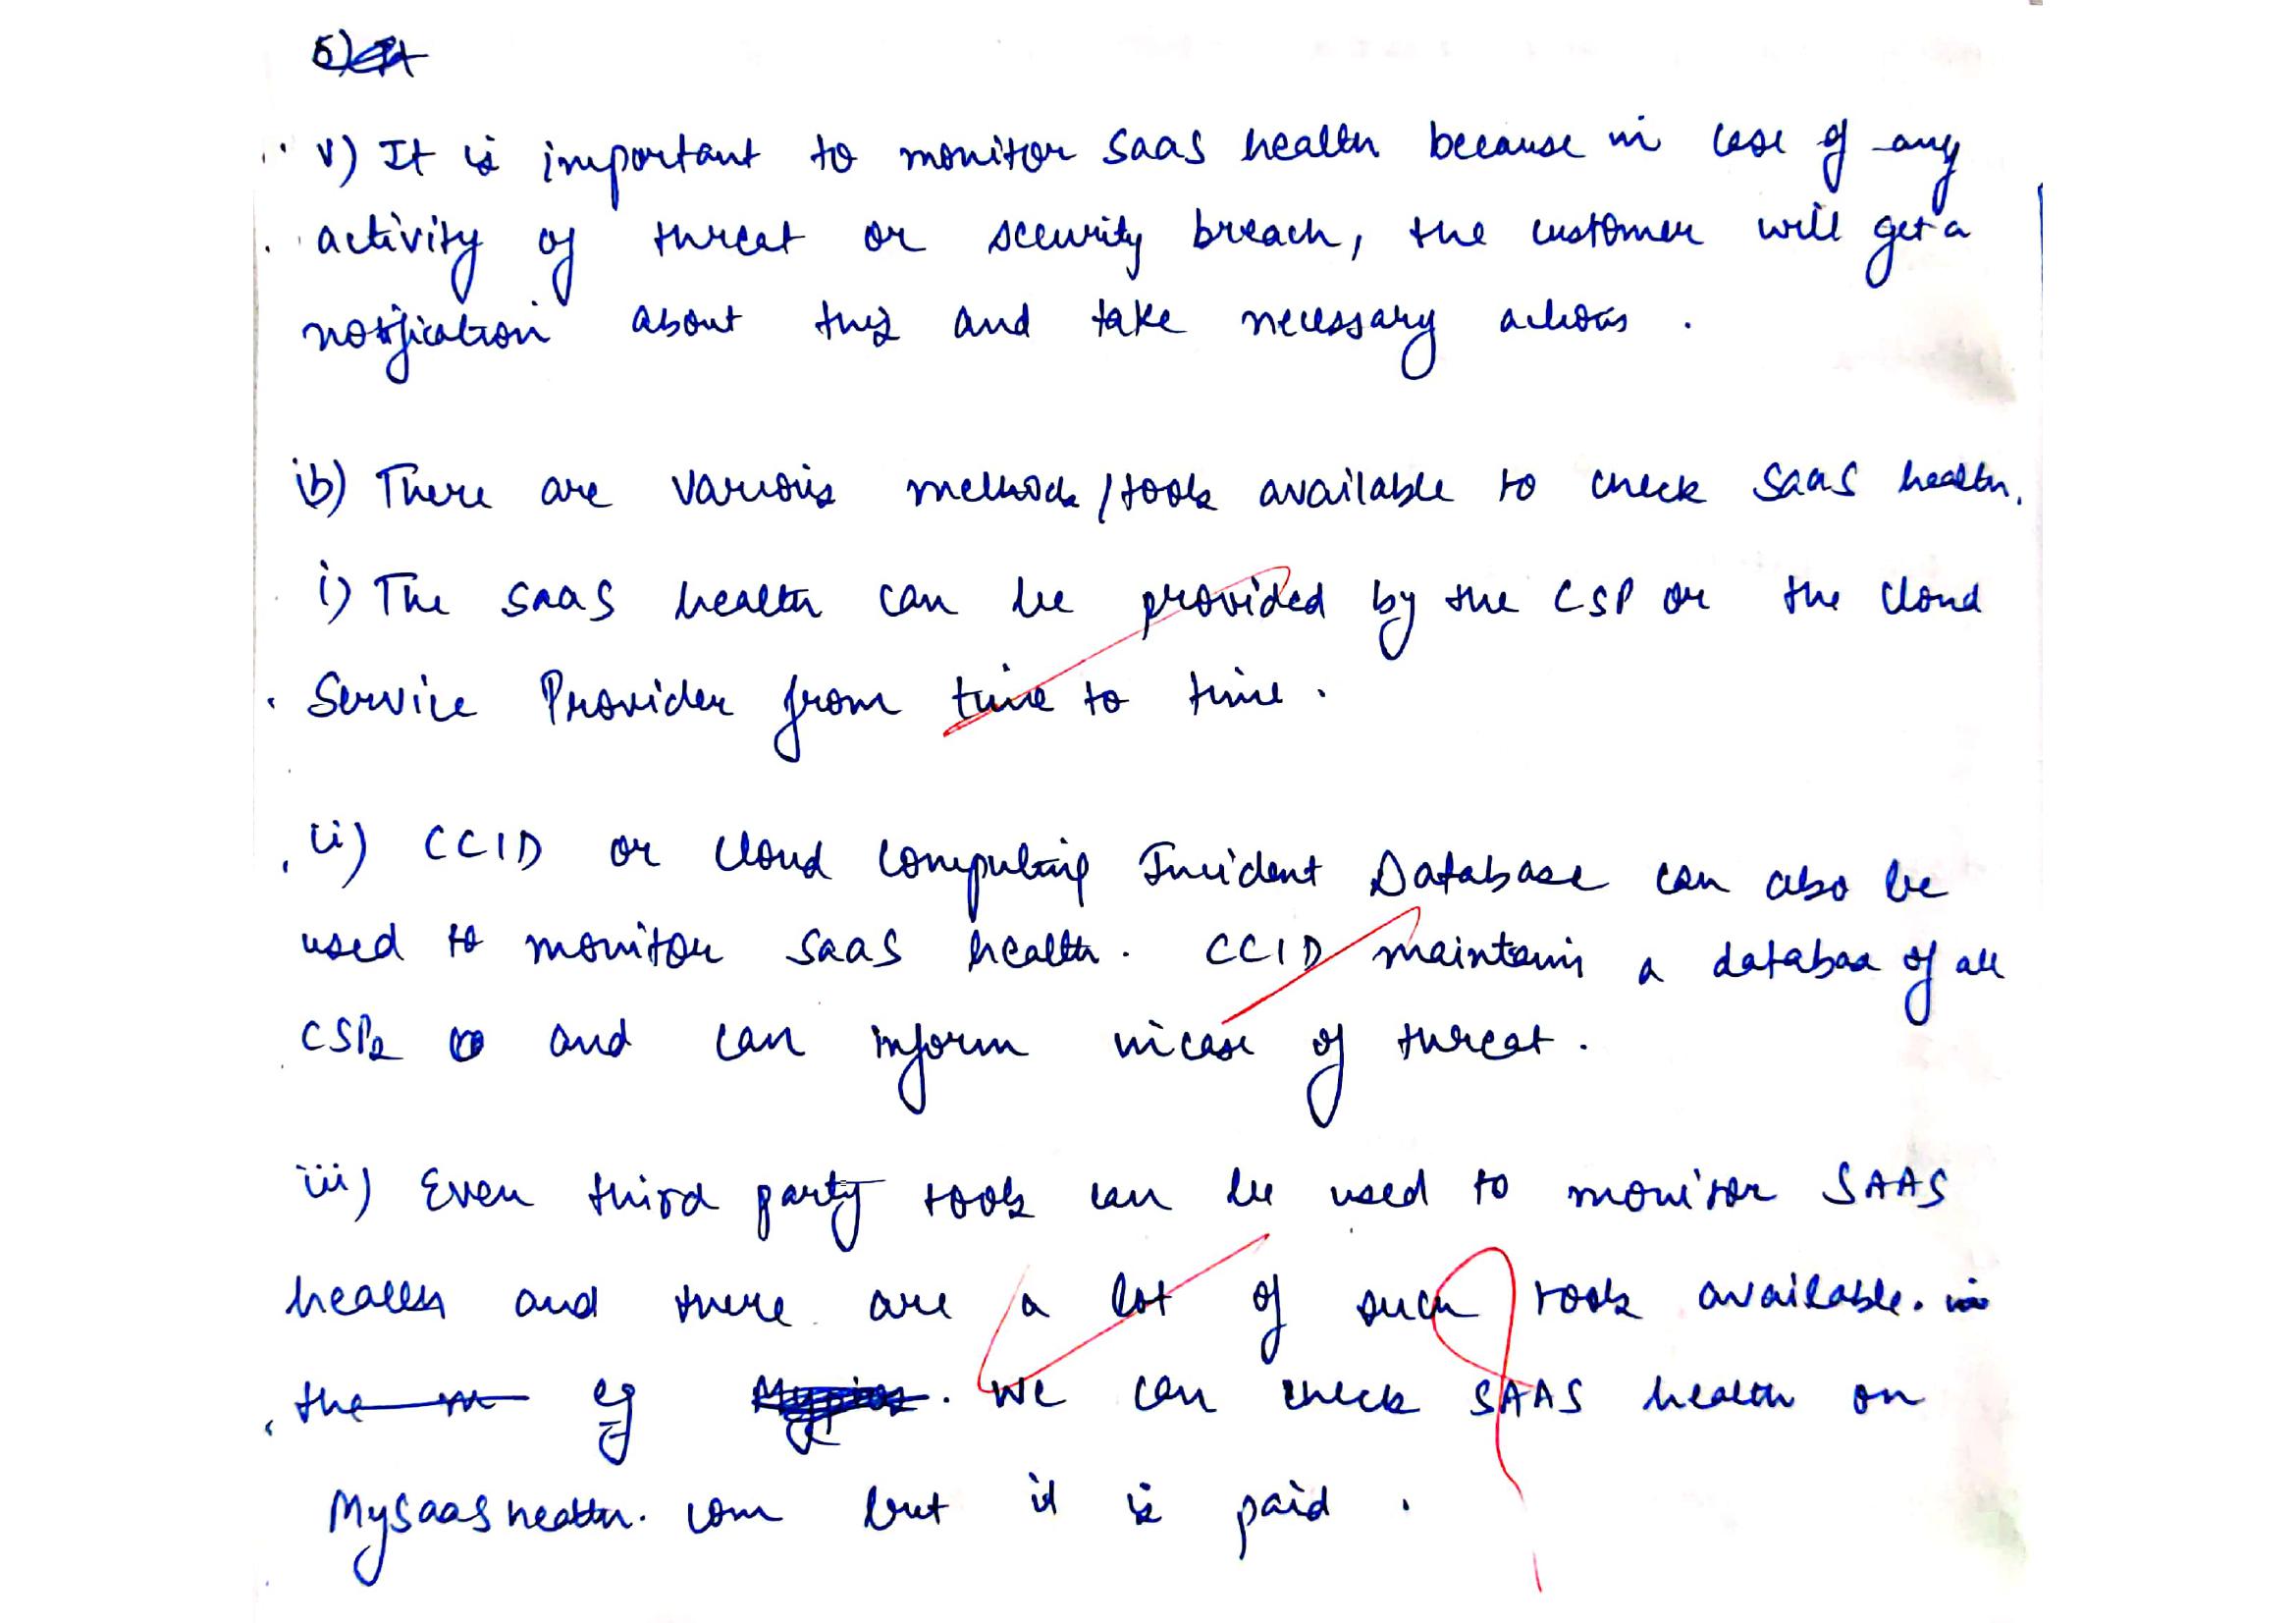 5)
v) It is important to monitor SaaS health because in case of any
activity of threat or security breach, the customer will get a
notification about this and take necessary actions.
ib) There are various methods/tools available to check SaaS health.
i) The SaaS health can be provided by the CSP or the Cloud
Service Provider from time to time.
ii) CCID or Cloud Computing Incident Database can also be
used to monitor SaaS health. CCID maintains a database of all
CSPs and can inform incase of threat.
iii) Even third party tools can be used to monitor SAAS
health and there are a lot of such tools available.
the eg . We can check SAAS health on
MySaaShealth.com but it is paid.